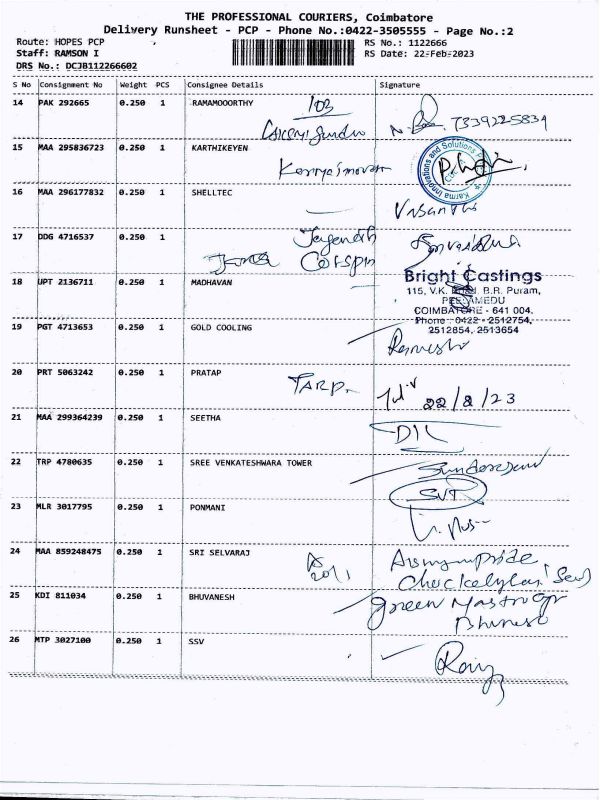 THE PROFESSIONAL COURIERS, Coimbatore
Delivery Runsheet - PCP - Phone No.:0422-3505555 - Page No.:2
Route: HOPES PCP
Staff: RAMSON I
DRS No.: DCJB112266602
RS No.: 1122666
RS Date: 22-Feb-2023
S No Consignment No Weight PCS Consignee Details Signature
14 PAK 292665 0.250 1 RAMAMOORTHY 103
7339225834
15 MAA 295836723 0.250 1 KARTHIKEYEN
Karma Innovations and Solutions
16 MAA 296177832 0.250 1 SHELLTEC
Vasantha
17 DDG 4716537 0.250 1
18 UPT 2136711 0.250 1 MADHAVAN
Bright Castings
115, V.K. Road, B.R. Puram,
PEELAMEDU
COIMBATORE - 641 004.
Phone : 0422 - 2512754,
2512854, 2513654
19 PGT 4713653 0.250 1 GOLD COOLING
Ramesh
20 PRT 5063242 0.250 1 PRATAP TARP.
22/2/23
21 MAA 299364239 0.250 1 SEETHA
22 TRP 4780635 0.250 1 SREE VENKATESHWARA TOWER
SVT
23 MLR 3017795 0.250 1 PONMANI
24 MAA 859248475 0.250 1 SRI SELVARAJ
25 KDI 811034 0.250 1 BHUVANESH
Green
26 MTP 3027100 0.250 1 SSV